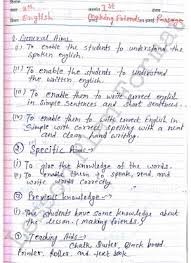 9th
1st
English
Making Friends
Passage
① General Aims
(i) To enable the students to understand the
spoken english.
(ii) To enable the students to understand
the written english.
(iii) To enable them to write correct english
in Simple Sentences and Short Sentences.
(iv) To enable them to write correct English in
Simple with correct spelling with a neat
and clean hand writing.
② Specific Aims –
(i) To give the knowledge of the words.
(ii) To enable them to speak, read and
write words correctly.
③ Previous knowledge –
① The Students have some knowledge about
the lesson. (making friends)
④ Teaching Aids –
Chalk, Duster, Black board
Pointer, Roller, and text book.